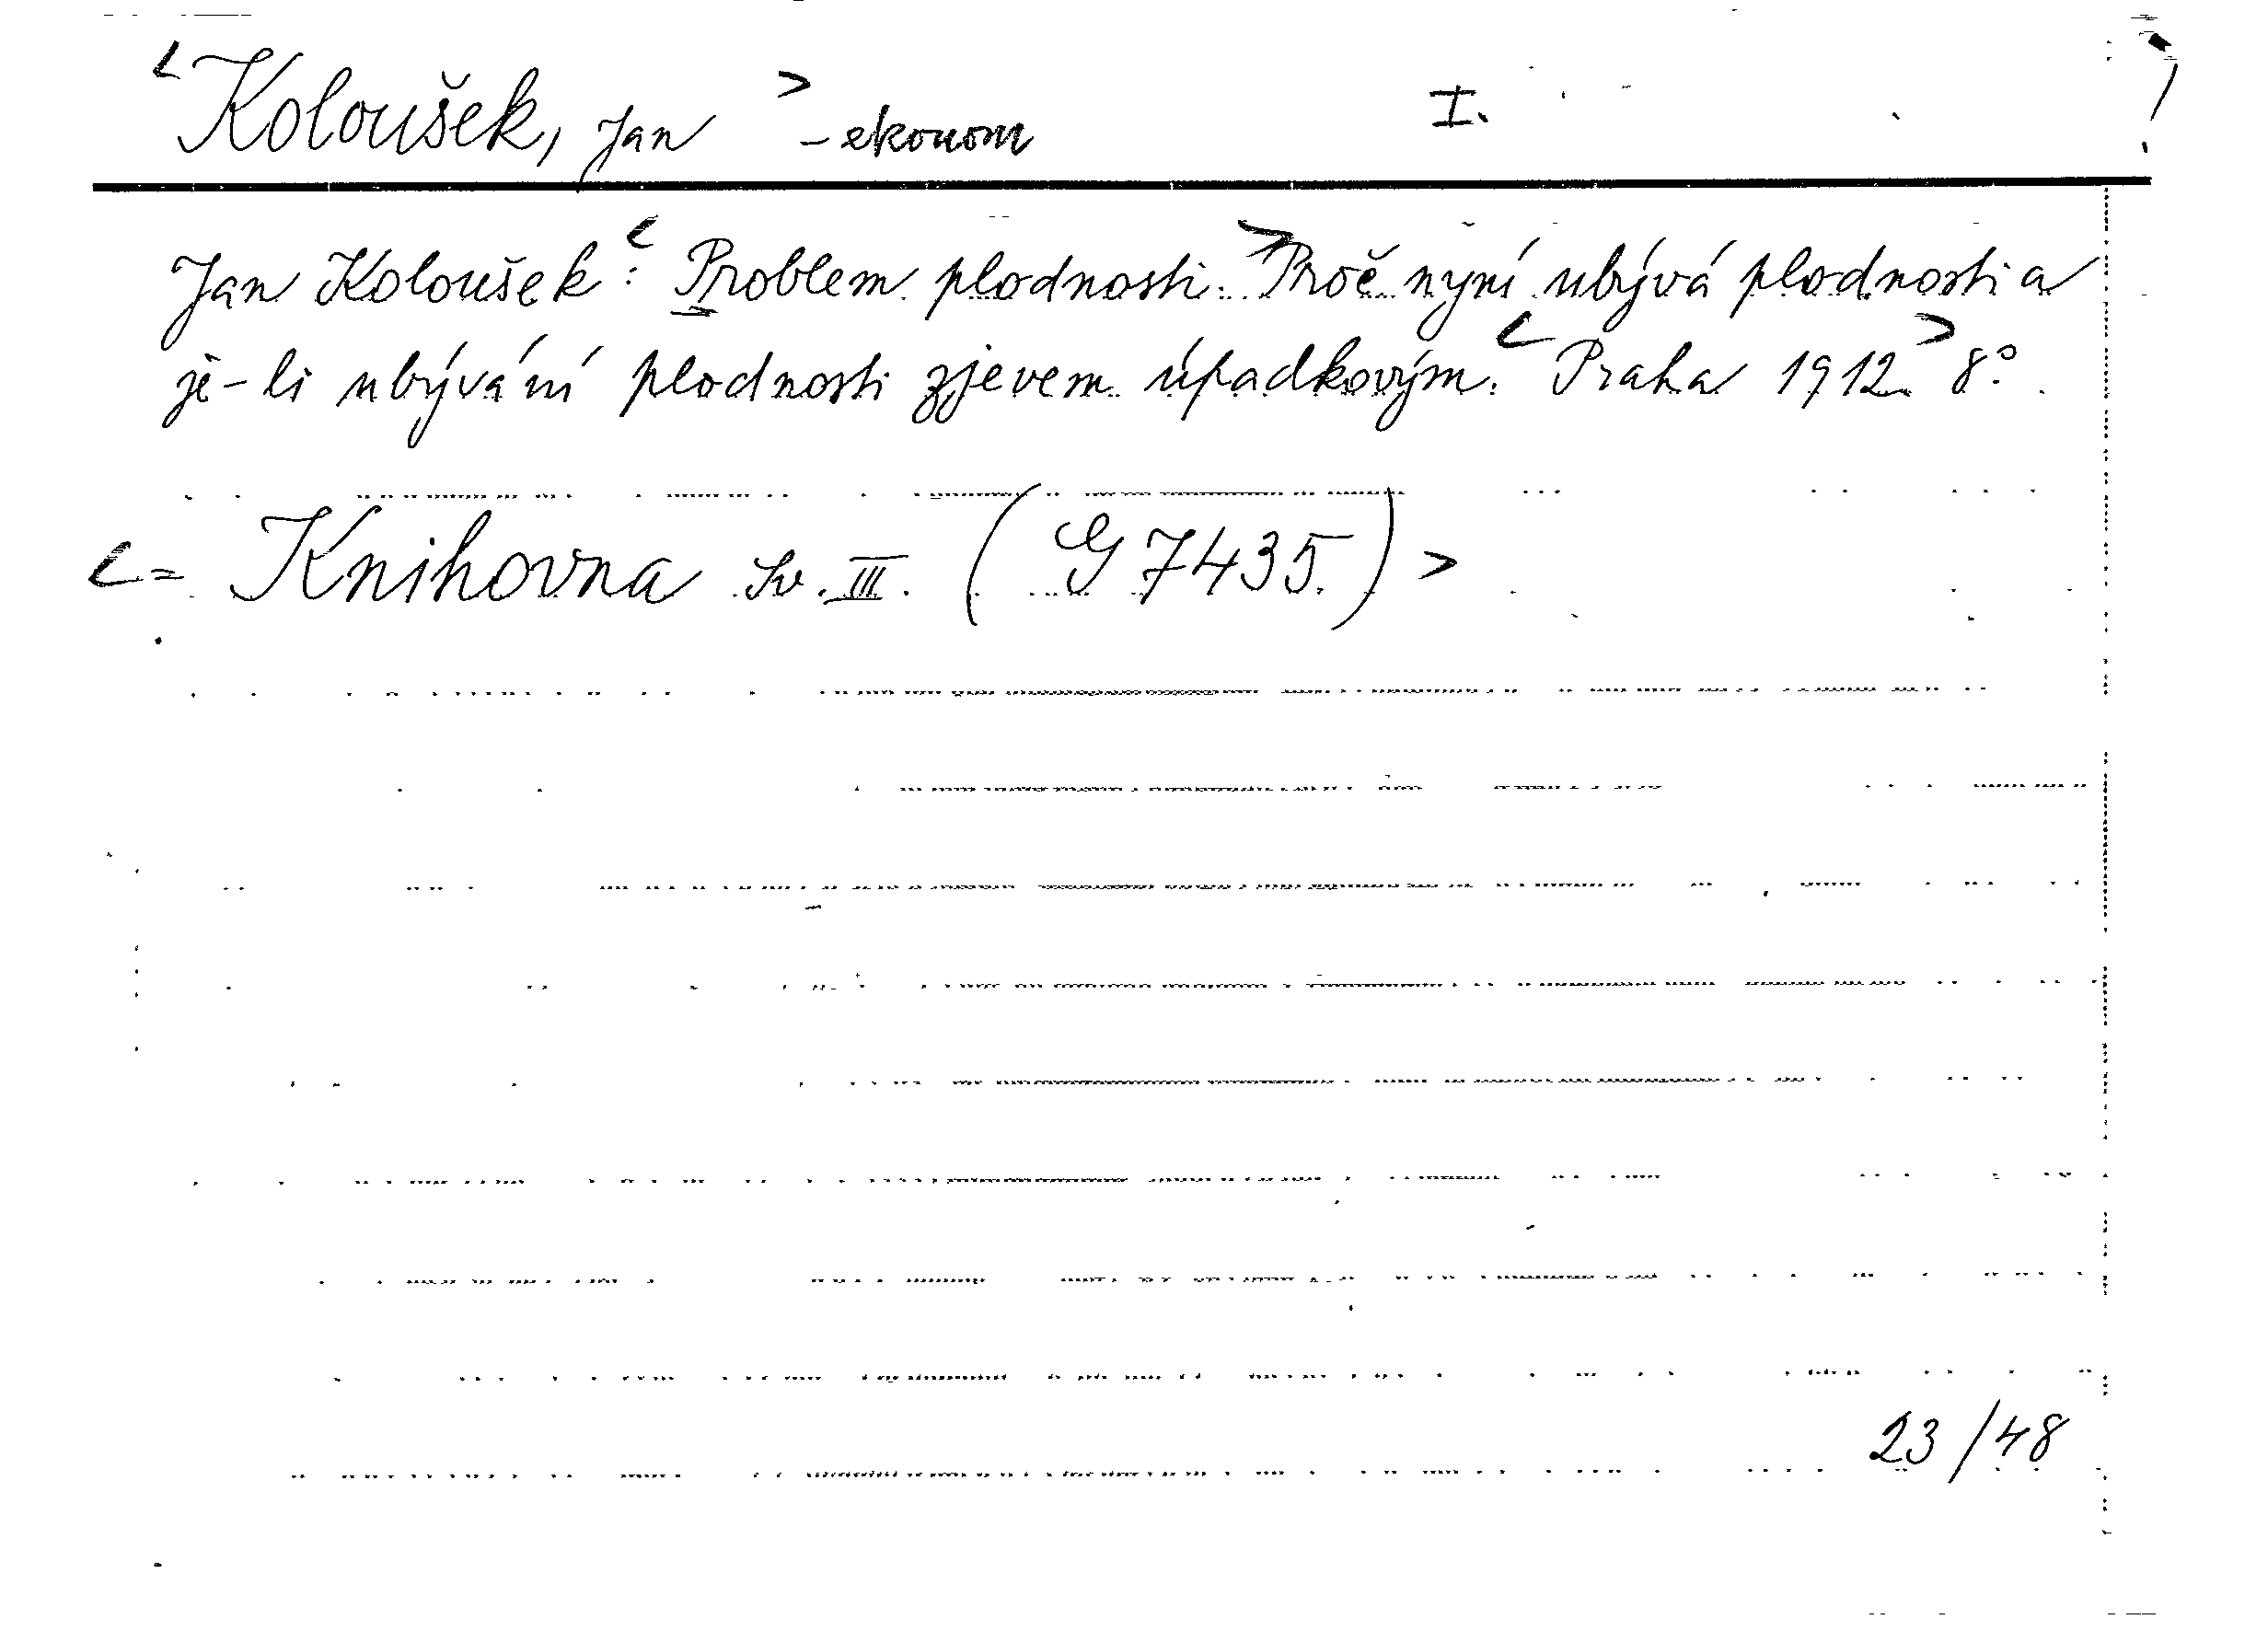 <Koloušek, Jan> - ekonom I.
Jan Koloušek: <Problem plodnosti.> Proč nyní ubývá plodnosti a
je-li ubývání plodnosti zjevem úpadkovým. <Praha 1912> 8°.
<= Knihovna sv. III. (G 7435.)>
23/48